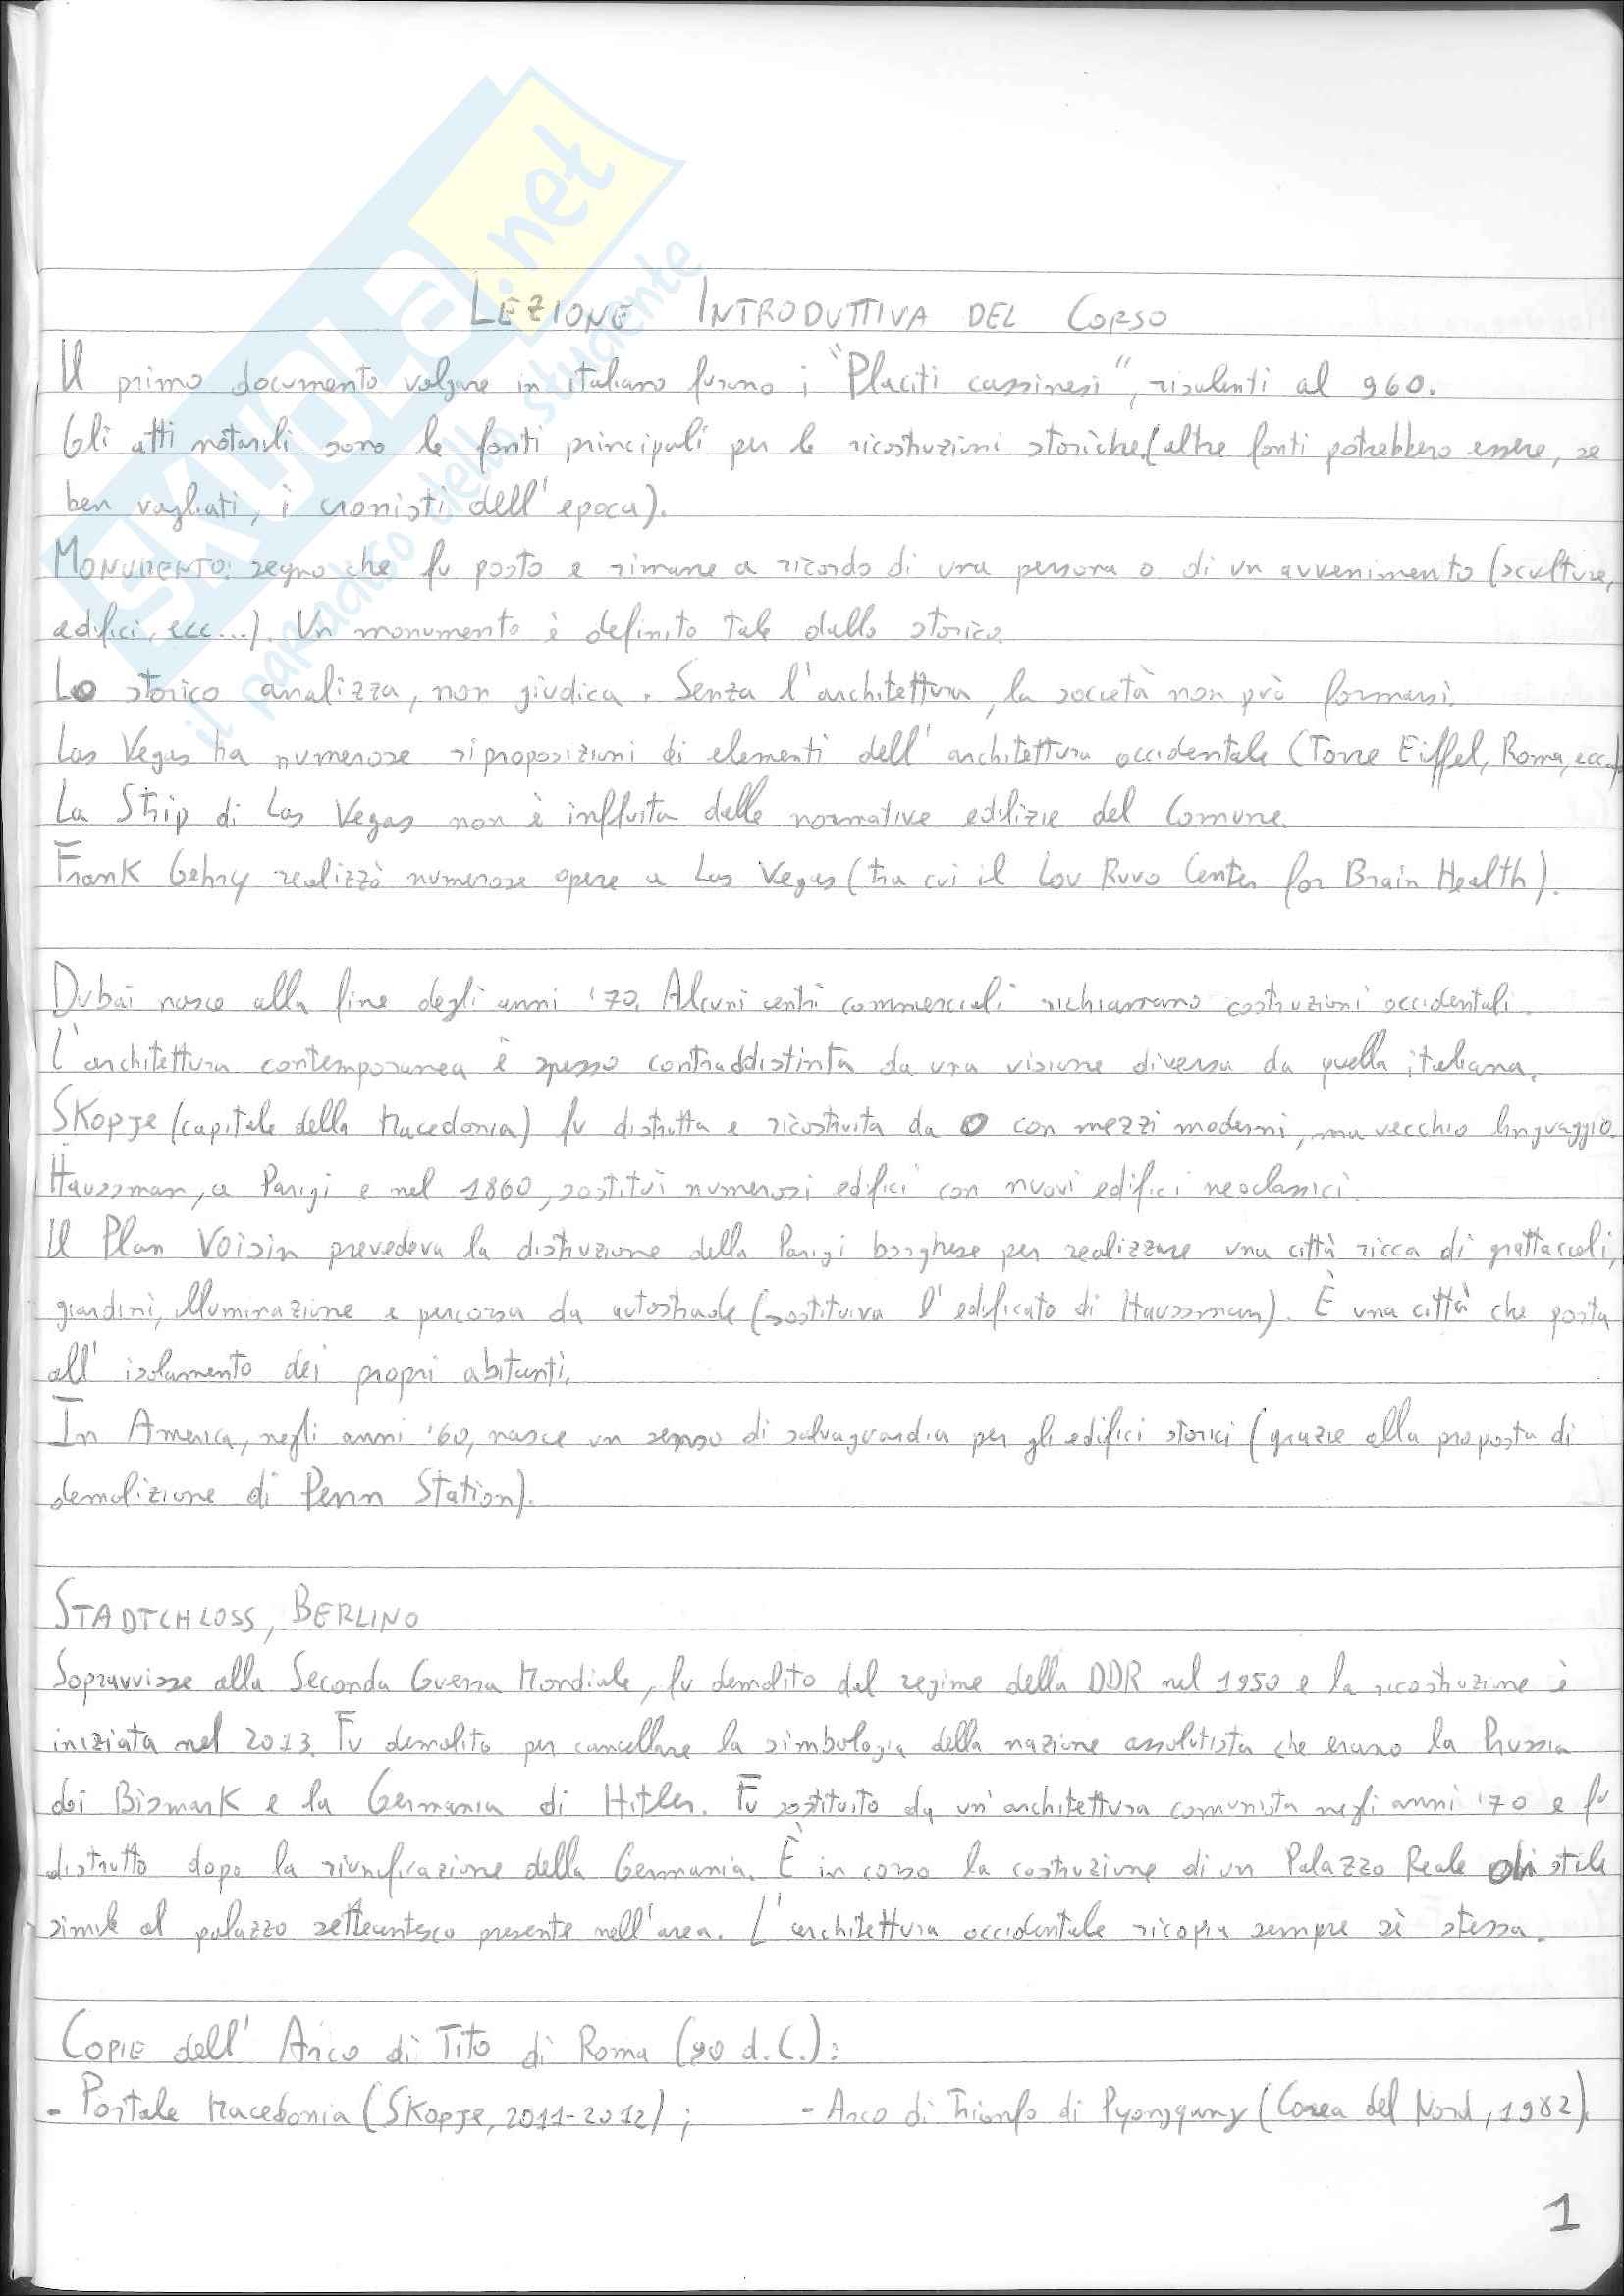 SKUOLA.net
il paradiso dello studente
LEZIONE INTRODUTTIVA DEL CORSO
Il primo documento volgare in italiano furono i "Placiti cassinesi", risalenti al 960.
Gli atti notarili sono le fonti principali per le ricostruzioni storiche (altre fonti potrebbero essere, se
ben vagliati, i cronisti dell'epoca).
MONUMENTO: segno che fu posto e rimane a ricordo di una persona o di un avvenimento (sculture,
edifici, ecc...). Un monumento è definito tale dallo storico.
Lo storico analizza, non giudica. Senza l'architettura, la società non può formarsi.
Las Vegas ha numerose riproposizioni di elementi dell'architettura occidentale (Torre Eiffel, Roma, ecc..)
La Strip di Las Vegas non è influita dalle normative edilizie del Comune.
Frank Gehry realizzò numerose opere a Las Vegas (tra cui il Lou Ruvo Center for Brain Health).
Dubai nasce alla fine degli anni '70. Alcuni centri commerciali richiamano costruzioni occidentali.
L'architettura contemporanea è spesso contraddistinta da una visione diversa da quella italiana.
SKOPJE (capitale della Macedonia) fu distrutta e ricostruita da 0 con mezzi moderni, ma vecchio linguaggio.
Haussman, a Parigi e nel 1860, sostituì numerosi edifici con nuovi edifici neoclassici.
Il Plan Voisin prevedeva la distruzione della Parigi borghese per realizzare una città ricca di grattacieli,
giardini, illuminazione e percorsa da autostrade (sostituiva l'edificato di Haussman). È una città che porta
all'isolamento dei propri abitanti.
In America, negli anni '60, nasce un senso di salvaguardia per gli edifici storici (grazie alla proposta di
demolizione di Penn Station).
STADTCHLOSS, BERLINO
Sopravvisse alla Seconda Guerra Mondiale, fu demolito dal regime della DDR nel 1950 e la ricostruzione è
iniziata nel 2013. Fu demolito per cancellare la simbologia della nazione assolutista che erano la Prussia
dei Bismark e la Germania di Hitler. Fu sostituito da un'architettura comunista negli anni '70 e fu
distrutto dopo la riunificazione della Germania. È in corso la costruzione di un Palazzo Reale di stile
simile al palazzo settecentesco presente nell'area. L'architettura occidentale ricopia sempre sè stessa.
COPIE dell'Arco di Tito di Roma (90 d.C.):
- Portale Macedonia (SKOPJE, 2011-2012); - Arco di Trionfo di Pyongyang (Corea del Nord, 1982).
1